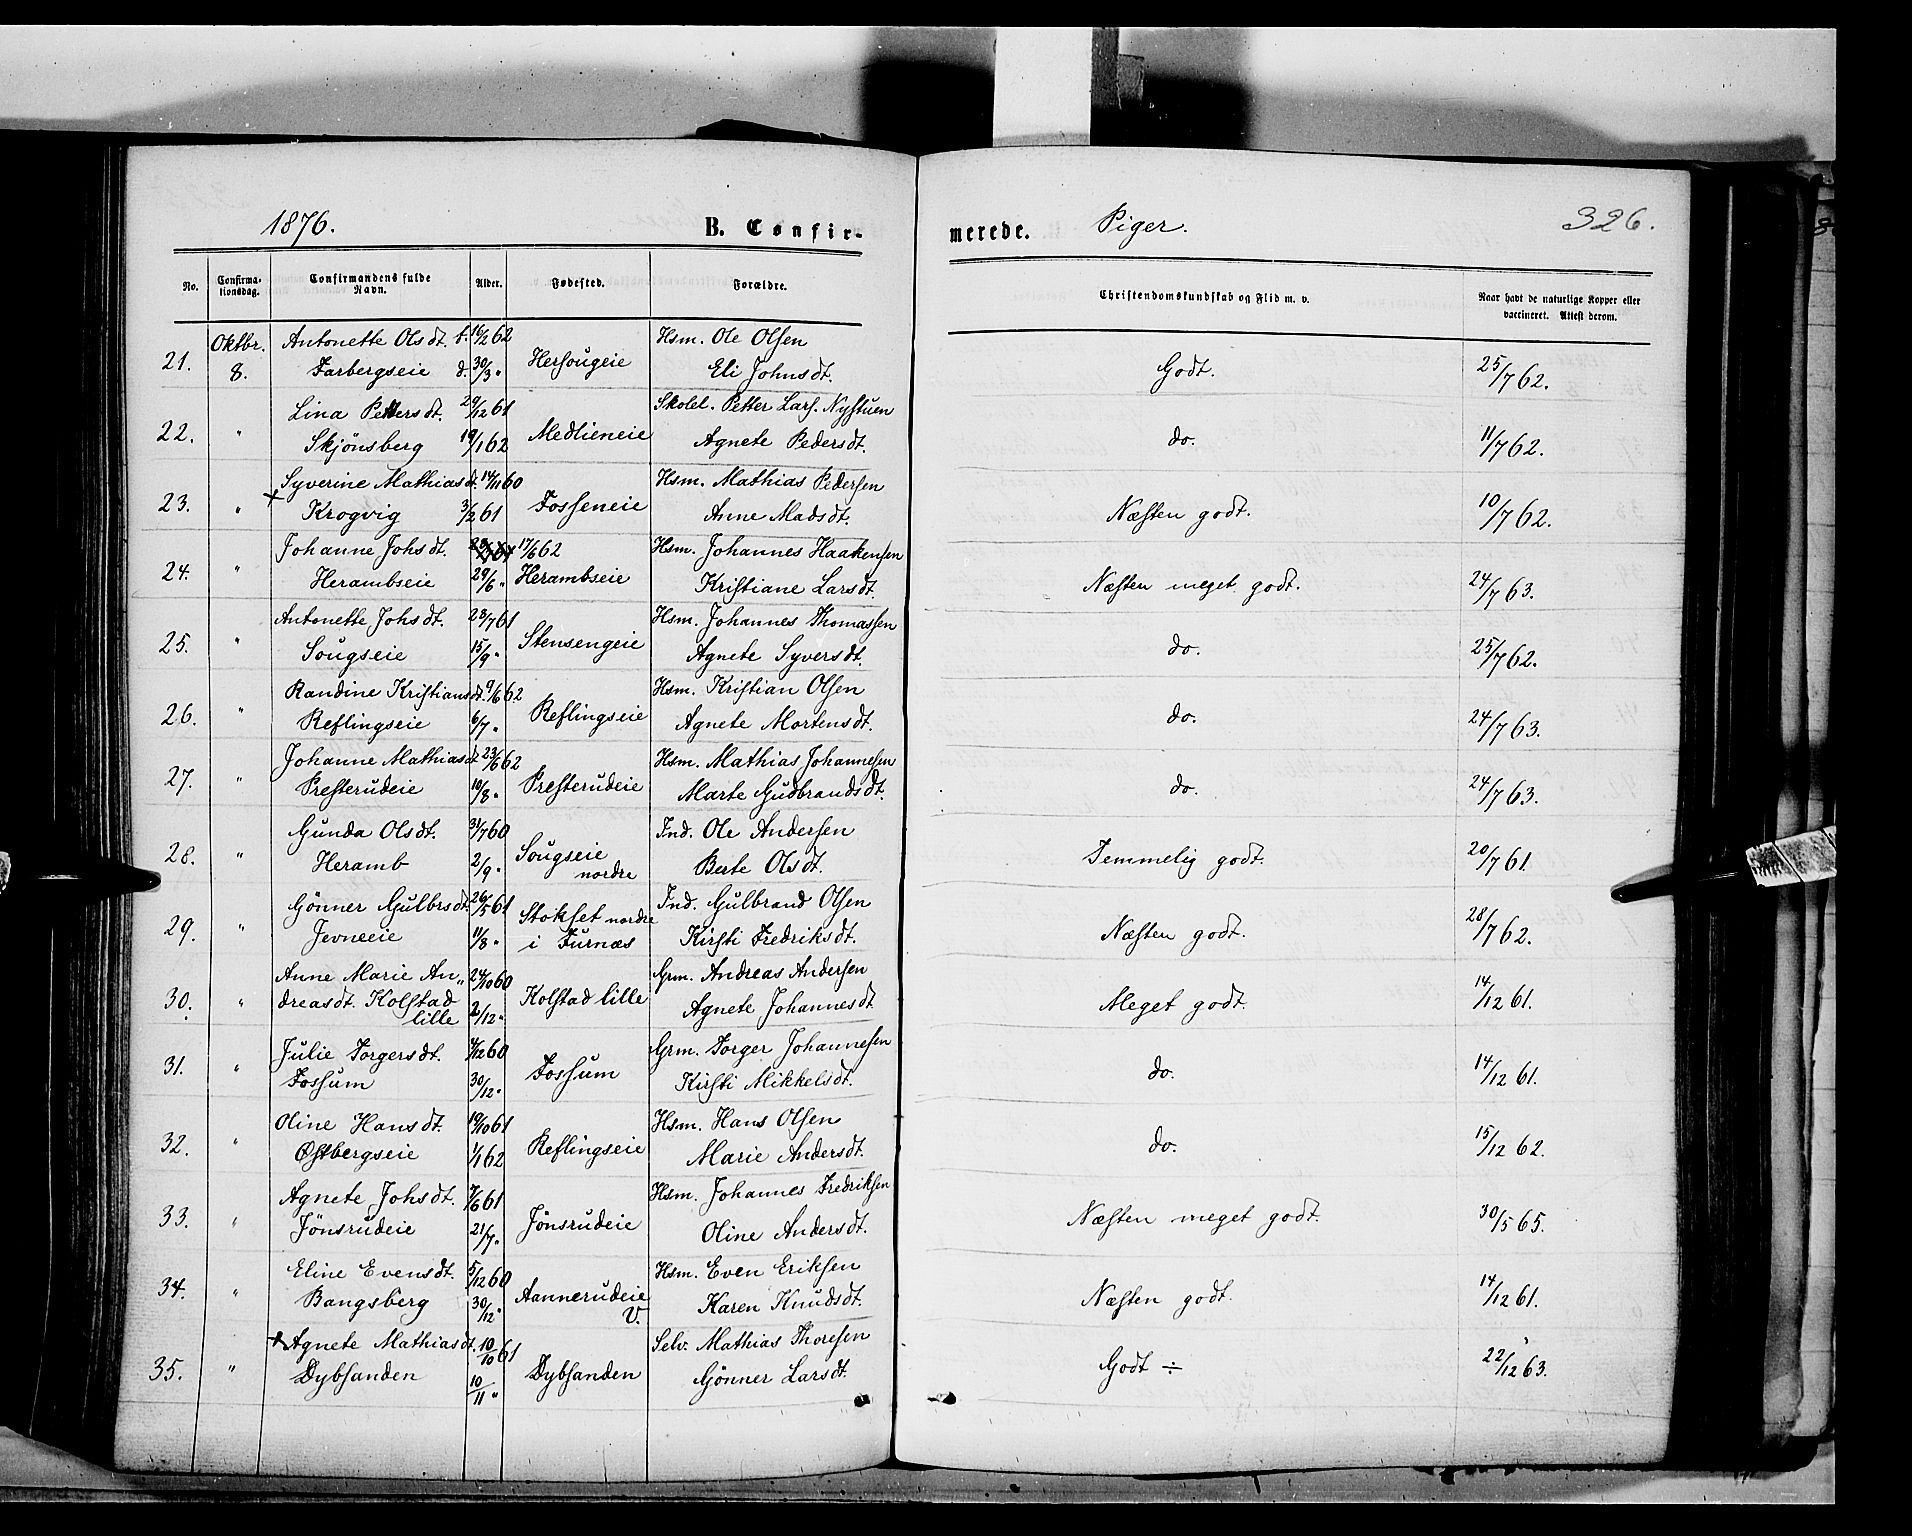 1876. B. Confir-
merede. Piger. 326.
No. Confirma-tionsdag. Confirmandens fulde Navn. Alder. Fødested. Forældre. Christendomskundskab og Flid m. v. Naar havt de naturlige Kopper eller vaccineret. Attest derom.
Oktbr. Antonette Olsdt. f. 16/2 62 Hsm. Ole Olsen
21. 8. Farbergseie d. 30/3 " Hersougeie Eli Johnsdt. Godt. 25/7 62.
Lina Pettersdt. 29/12 61 Skolel. Petter Lars. Nystuen
22. " Skjönsberg 19/1 62 Medlieneie Agnete Pedersdt. do. 11/7 62.
Syverine Mathiasdt. 14/11 60 Hsm. Mathias Pedersen
23. " + Krogvig 3/2 61 Fosseneie Anne Madsdt. Næsten godt. 10/7 62.
Johanne Johsdt. 17/6 62 Hsm. Johannes Haakensen
24. " Herambseie 29/6 " Herambseie Kristiane Larsdt. Næsten meget godt. 24/7 63.
Antonette Johsdt. 23/7 61 Hsm. Johannes Thomassen
25. " Sougseie 15/9 " Stensengeie Agnete Syversdt. do. 25/7 62.
Randine Kristiansdt. 9/6 62 Hsm. Kristian Olsen
26. " Reflingseie 6/7 " Reflingseie Agnete Mortensdt. do. 24/7 63.
Johanne Mathiasdt 23/6 62 Hsm. Mathias Johannesen
27. " Presterudeie 10/8 " Presterudeie Marte Gudbrandsdt. do. 24/7 63.
Gunda Olsdt. 31/7 60 Ind. Ole Andersen
28. " Heramb 2/9 " Sougseie nordre Berte Olsdt. Temmelig godt. 20/7 61.
Gönner Gulbrsdt. 26/5 61 Stokset nordre Ind. Gulbrand Olsen
29. " Jevneeie 11/8 " i Furnæs Kirsti Fredriksdt. Næsten godt. 28/7 62.
Anne Marie An" 24/10 60 Grm. Andreas Andersen
30. " dreasdt. Kolstad 2/12 " Kolstad lille Agnete Johannesdt Meget godt. 14/12 61.
lille
Julie Torgersdt. 4/12 60 Grm. Torger Johannesen
31. " Fossum 30/12 " Fossum Kirsti Mikkelsdt. do. 14/12 61.
Oline Hansdt. 19/10 61 Hsm. Hans Olsen
32. " Østbergseie 1/1 62 Reflingseie Marie Andersdt. do. 15/12 62.
Agnete Johsdt. 7/6 61 Hsm. Johannes Fredriksen
33. " Jönsrudeie 21/7 " Jönsrudeie Oline Andersdt. Næsten meget godt. 30/5 65.
Eline Evensdt. 5/12 60 Hsm. Even Eriksen
34. " Bangsberg 30/12 " Aannerudeie V. Karen Knudsdt. Næsten godt. 14/12 61.
+ Agnete Mathiasdt. 10/10 61 Selv. Mathias Thoresen
35. " Dybsanden 10/11 " Dybsanden Gönner Larsdt. Godt ÷ 22/12 63.